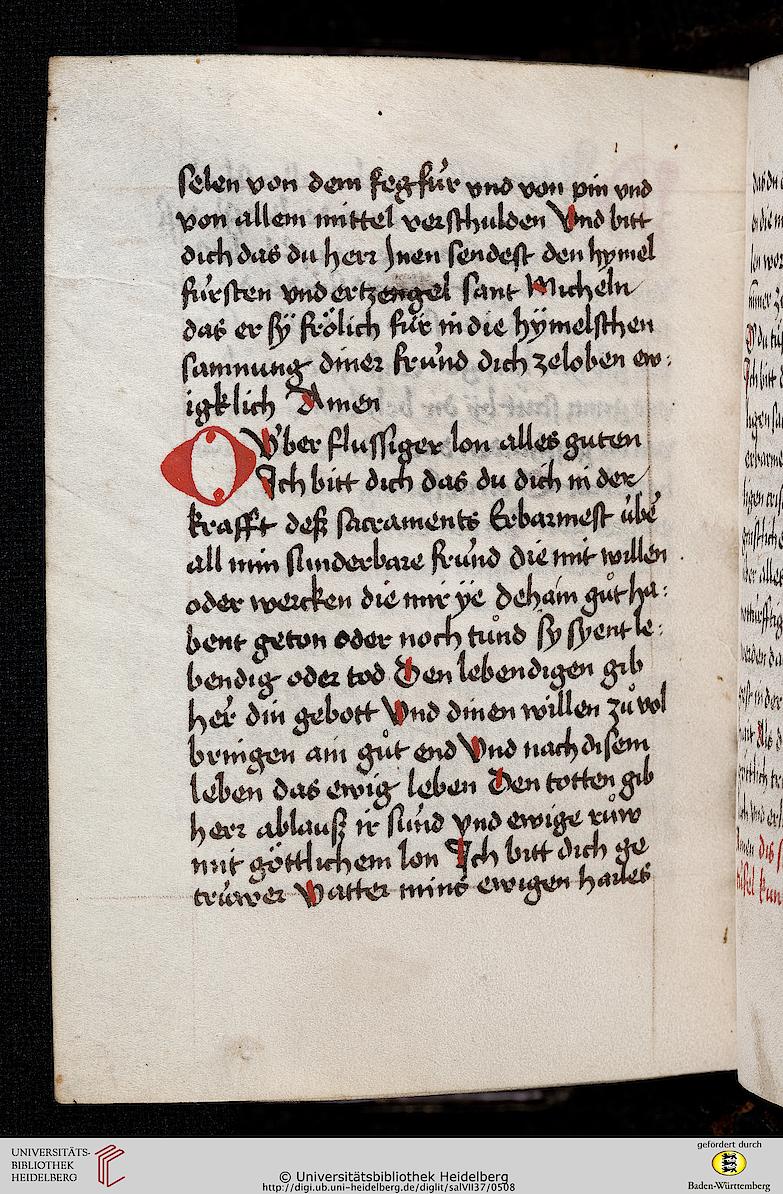 selen von dem fegfür vnd von pin vnd
von allem mittel verschulden Vnd bitt
dich das du herr Jnen sendest den hymel
fürsten vnd ertzengel sant Micheln
das er sÿ frölich für in die hÿmelschen
samnung diner fründ dich zeloben ew:
igklich Amen
O V̈ber flussiger lon alles guten
Ich bitt dich das du dich in der
krafft deß sacraments Erbarmest übe
all min sunderbare fründ die mit willen
oder wercken die mir ÿe dehain gůt ha:
bent geton oder noch tůnd sÿ sÿent le:
bendig oder tod Den lebendigen gib
her din gebott Vnd dinen willen zů vol
bringen ain gůt end Vnd nach disem
leben das ewig leben Den totten gib
herr ablauß ir sünd vnd ewige růw
mit göttlichem lon Ich bitt dich ge
trüwer Vatter mins ewigen hailes
UNIVERSITÄTS-
BIBLIOTHEK
HEIDELBERG
© Universitätsbibliothek Heidelberg
http://digi.ub.uni-heidelberg.de/diglit/salVII37/0508
gefördert durch
Baden-Württemberg